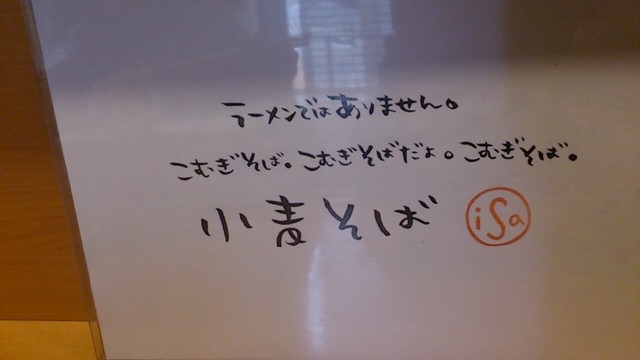 ラーメンではありません。
こむぎそば。こむぎそばだよ。こむぎそば。
小麦そば iSa